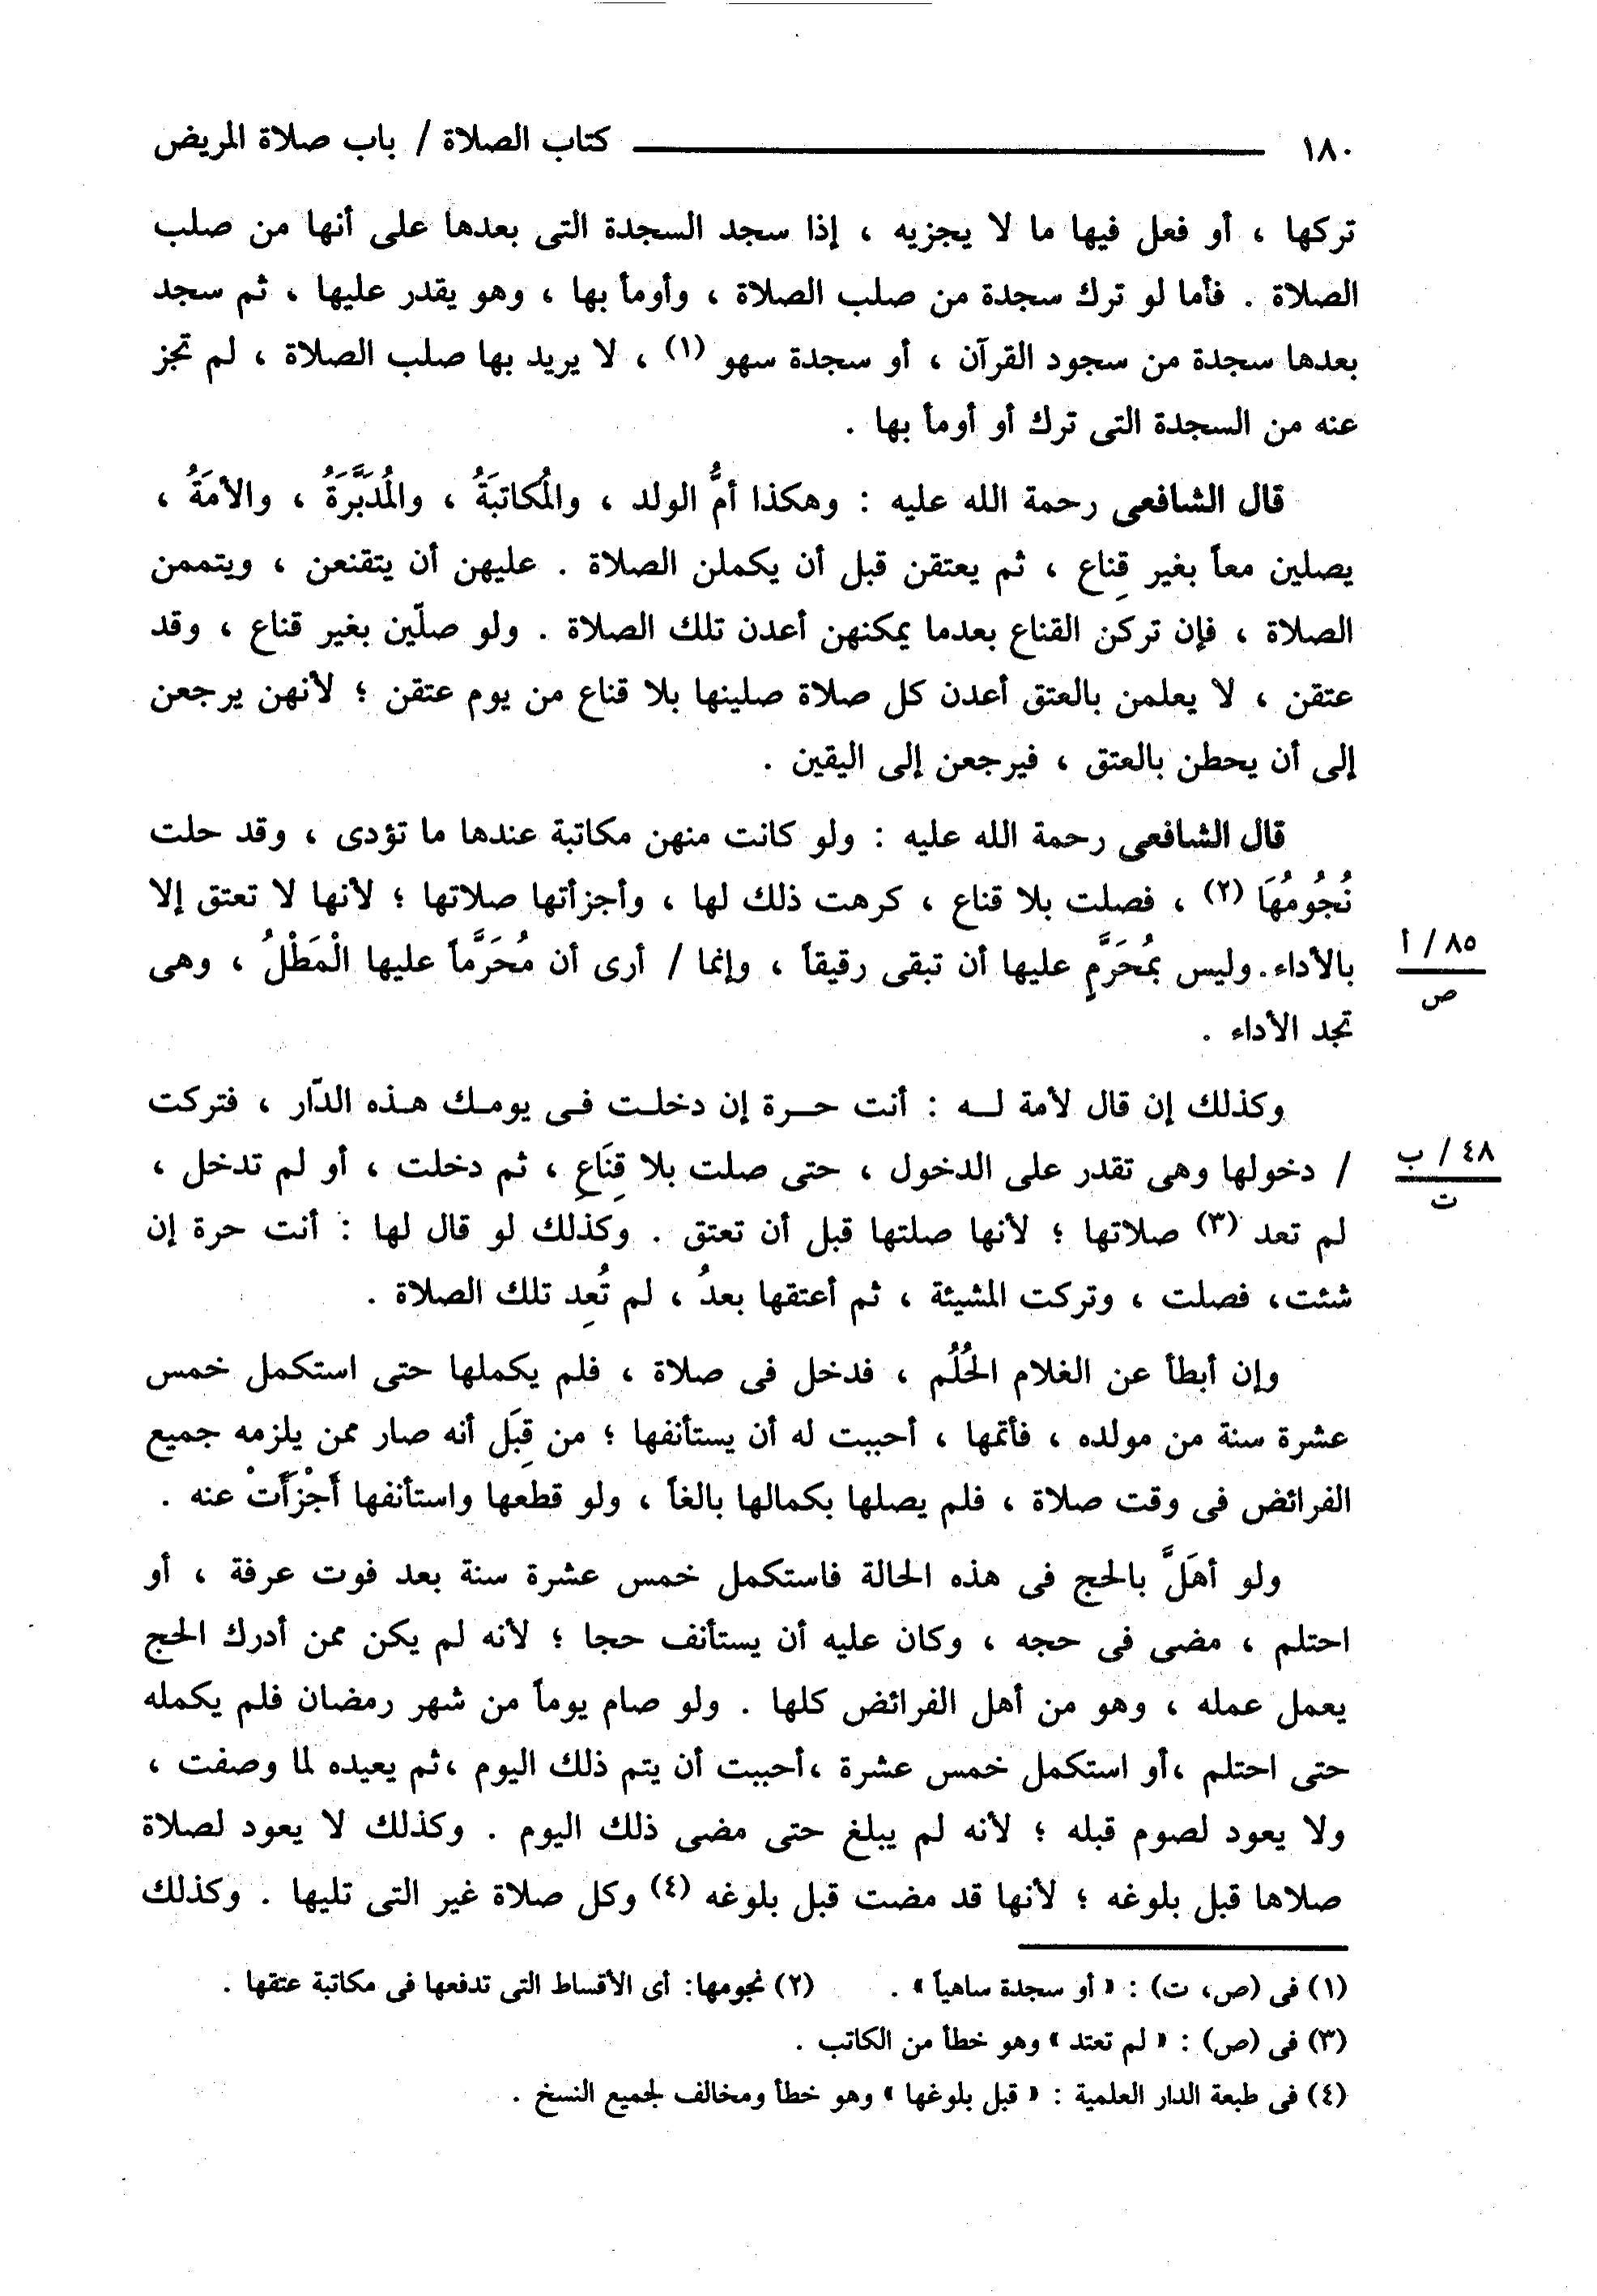 ١٨٠ كتاب الصلاة / باب صلاة المريض
تركها ، أو فعل فيها ما لا يجزيه ، إذا سجد السجدة التى بعدها على أنها من صلب
الصلاة . فأما لو ترك سجدة من صلب الصلاة ، وأومأ بها ، وهو يقدر عليها ، ثم سجد
بعدها سجدة من سجود القرآن ، أو سجدة سهو (١) ، لا يريد بها صلب الصلاة ، لم تجز
عنه من السجدة التى ترك أو أومأ بها .
قال الشافعى رحمة الله عليه : وهكذا أمُّ الولد ، والمُكاتبَةُ ، والمُدَبَّرَةُ ، والأمَةُ ،
يصلين معاً بغير قِناع ، ثم يعتقن قبل أن يكملن الصلاة . عليهن أن يتقنعن ، ويتممن
الصلاة ، فإن تركن القناع بعدما يمكنهن أعدن تلك الصلاة . ولو صلّين بغير قناع ، وقد
عتقن ، لا يعلمن بالعتق أعدن كل صلاة صلينها بلا قناع من يوم عتقن ؛ لأنهن يرجعن
إلى أن يحطن بالعتق ، فيرجعن إلى اليقين .
قال الشافعى رحمة الله عليه : ولو كانت منهن مكاتبة عندها ما تؤدى ، وقد حلت
نُجُومُهَا (٢) ، فصلت بلا قناع ، كرهت ذلك لها ، وأجزأتها صلاتها ؛ لأنها لا تعتق إلا
بالأداء. وليس بمُحَرَّمٍ عليها أن تبقى رقيقاً ، وإنما / أرى أن مُحَرَّماً عليها الْمَطْلُ ، وهى
٨٥ / أ
ص
تجد الأداء .
وكذلك إن قال لأمة لـه : أنت حـرة إن دخلـت فـى يومـك هـذه الدّار ، فتركت
/ دخولها وهى تقدر على الدخول ، حتى صلت بلا قِنَاعِ ، ثم دخلت ، أو لم تدخل ،
٤٨ / ب
ت
لم تعد (٣) صلاتها ؛ لأنها صلتها قبل أن تعتق . وكذلك لو قال لها : أنت حرة إن
شئت، فصلت ، وتركت المشيئة ، ثم أعتقها بعدُ ، لم تُعِد تلك الصلاة .
وإن أبطأ عن الغلام الحُلُم ، فدخل فى صلاة ، فلم يكملها حتى استكمل خمس
عشرة سنة من مولده ، فأتمها ، أحببت له أن يستأنفها ؛ من قِبَل أنه صار ممن يلزمه جميع
الفرائض فى وقت صلاة ، فلم يصلها بكمالها بالغاً ، ولو قطعها واستأنفها أَجْزَأَتْ عنه .
ولو أهَلَّ بالحج فى هذه الحالة فاستكمل خمس عشرة سنة بعد فوت عرفة ، أو
احتلم ، مضى فى حجه ، وكان عليه أن يستأنف حجا ؛ لأنه لم يكن ممن أدرك الحج
يعمل عمله ، وهو من أهل الفرائض كلها . ولو صام يوماً من شهر رمضان فلم يكمله
حتى احتلم ،أو استكمل خمس عشرة ،أحببت أن يتم ذلك اليوم ،ثم يعيده لما وصفت ،
ولا يعود لصوم قبله ؛ لأنه لم يبلغ حتى مضى ذلك اليوم . وكذلك لا يعود لصلاة
صلاها قبل بلوغه ؛ لأنها قد مضت قبل بلوغه (٤) وكل صلاة غير التى تليها . وكذلك
(١) فى (ص، ت) : « أو سجدة ساهياً » . (٢) نجومها: أى الأقساط التى تدفعها فى مكاتبة عتقها .
(٣) فى (ص) : « لم تعتد » وهو خطأ من الكاتب .
(٤) فى طبعة الدار العلمية : « قبل بلوغها » وهو خطأ ومخالف لجميع النسخ .